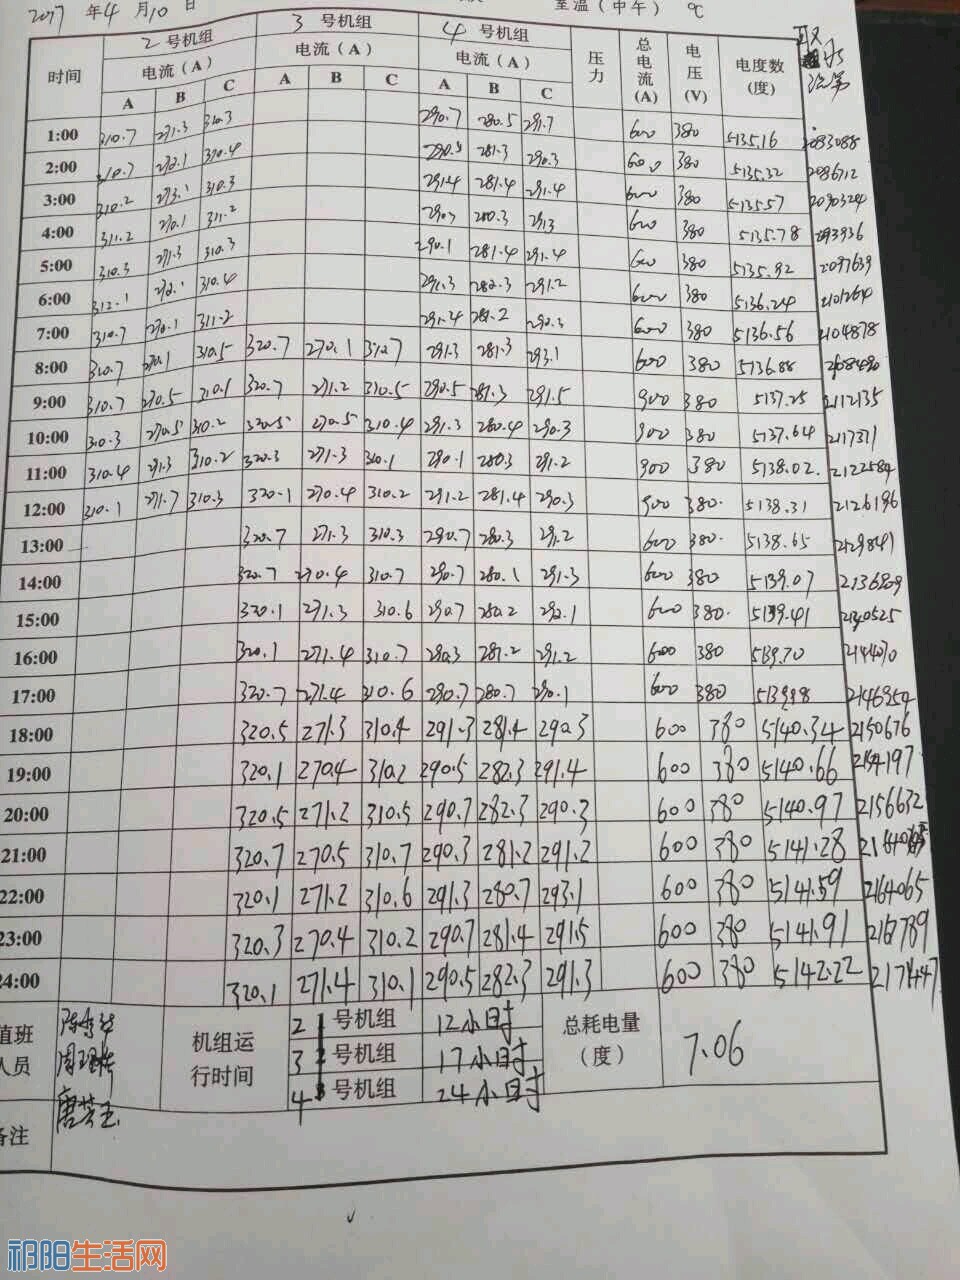 2017 年 4 月 10 日 室温（中午） ℃
时间 2 号机组 3 号机组 4 号机组 压力 总电流(A) 电压(V) 电度数(度) 取水
电流（A） 电流（A） 电流（A）
A B C A B C A B C
1:00 310.7 271.3 310.3 290.7 280.5 291.7 600 380 5135.16 2083088
2:00 310.7 272.1 310.4 281.3 290.3 600 380 5135.32 2086712
3:00 310.2 273.1 310.3 291.4 281.4 291.4 600 380 5135.57 2090324
4:00 311.2 270.1 311.2 280.3 600 380 5135.78 2093936
5:00 310.3 271.3 310.3 290.1 281.4 291.4 600 380 5135.92 2097639
6:00 312.1 272.1 310.4 291.3 282.3 291.2 600 380 5136.24 2101264
7:00 310.7 270.1 311.2 291.4 281.2 290.3 600 380 5136.56 2104878
8:00 310.7 270.1 310.5 320.7 270.1 310.7 291.3 281.3 293.1 600 380 5136.88 2108490
9:00 310.7 270.5 310.1 320.7 271.2 310.5 290.5 281.3 291.5 900 380 5137.25 2112135
10:00 310.3 270.5 310.2 320.5 270.5 310.4 291.3 280.4 290.3 900 380 5137.64
11:00 310.4 271.3 310.2 320.3 271.3 310.1 290.1 280.3 291.2 900 380 5138.02. 2122584
12:00 310.1 271.7 310.3 320.1 270.4 310.2 291.2 281.4 290.3 900 380. 5138.31 2126196
13:00 320.7 271.3 310.3 290.7 280.3 291.2 600 380. 5138.65 2129841
14:00 320.7 270.4 310.7 290.7 280.1 291.3 600 380 5139.07 2136809
15:00 320.1 271.3 310.6 290.7 280.2 292.1 600 380. 5139.41 2140525
16:00 320.1 271.4 310.7 290.3 281.2 291.2 600 380 5139.70 2144070
17:00 320.7 271.4 310.6 290.7 280.7 290.1 600 380 5139.98 2146954
18:00 320.5 271.3 310.4 291.3 281.4 290.3 600 380 5140.34 2150676
19:00 320.1 270.4 310.2 290.5 282.3 291.4 600 380 5140.66 2154197
20:00 320.5 271.2 310.5 290.7 282.3 290.3 600 380 5140.97 2156632
21:00 320.7 270.5 310.7 290.3 281.2 291.2 600 380 5141.28
22:00 320.1 271.2 310.6 291.3 280.7 293.1 600 380 5141.59 2164065
23:00 320.3 270.4 310.2 290.7 281.4 291.5 600 380 5141.91 2167789
24:00 320.1 271.4 310.1 290.5 282.3 291.3 600 380 5142.22 2171447
值班人员 机组运行时间 2 号机组 12小时 总耗电量（度） 7.06
3 号机组 17小时
4 号机组 24小时
备注
祁阳生活网